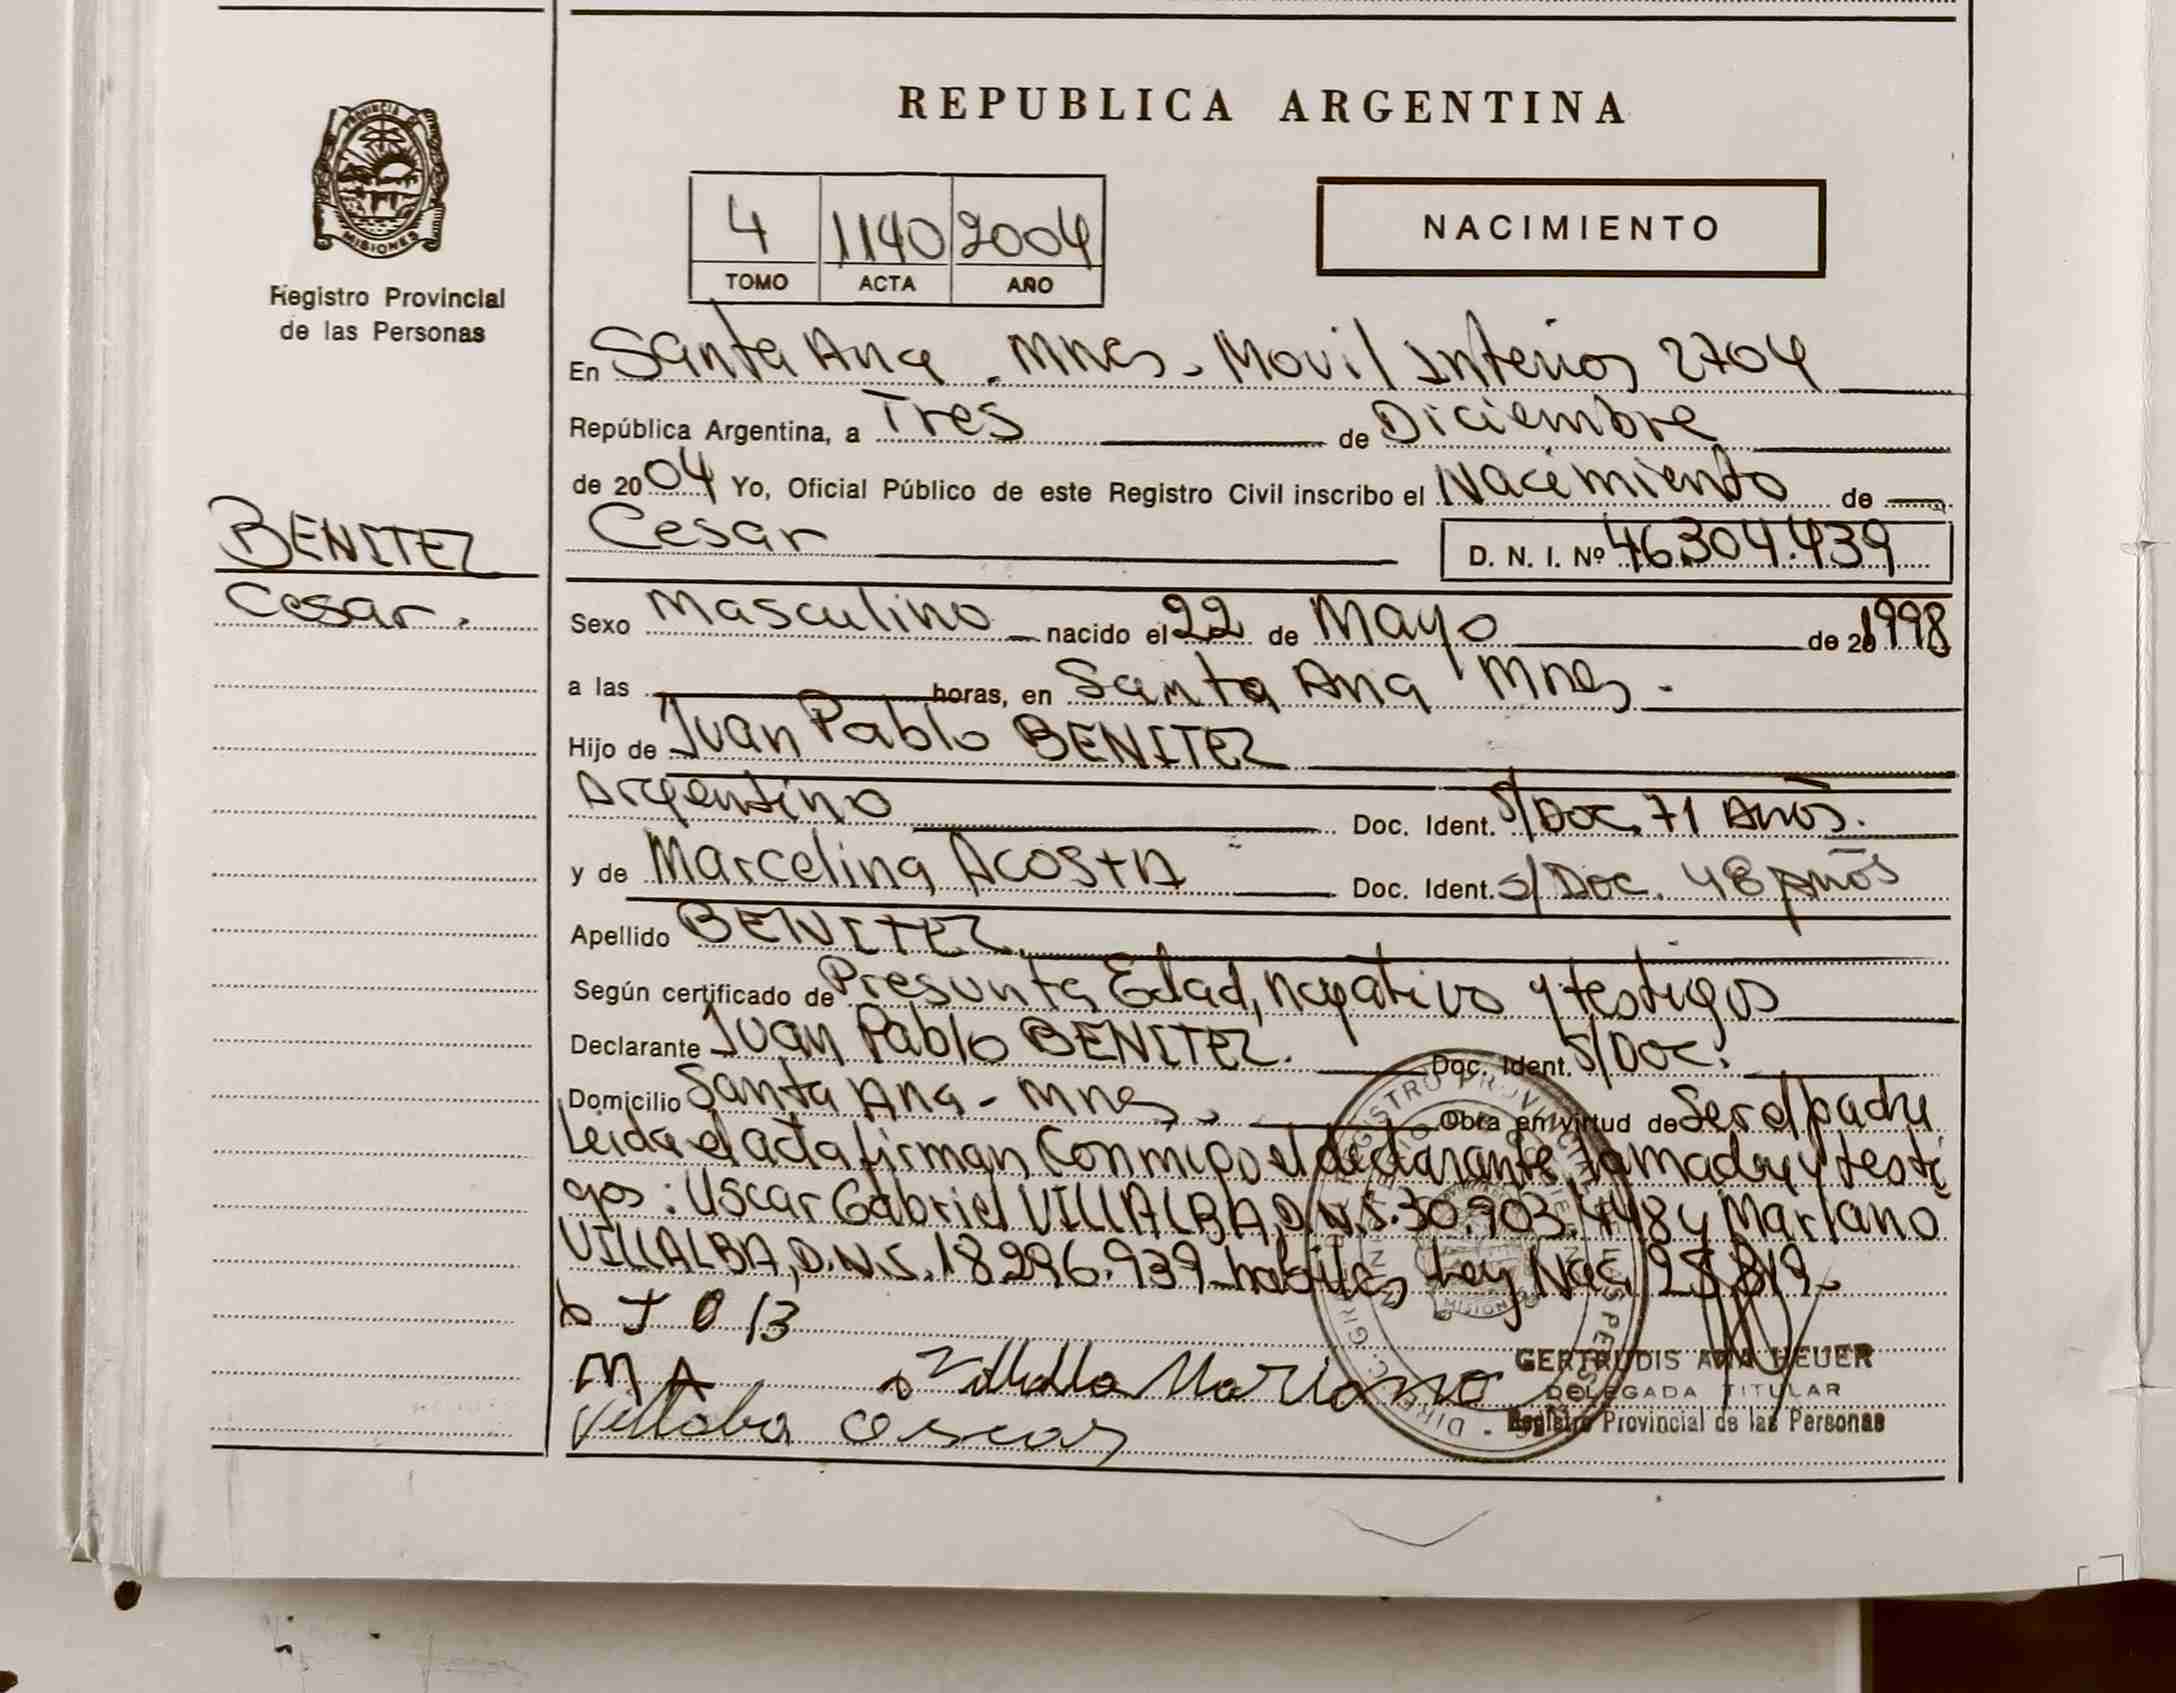 REPUBLICA ARGENTINA
PROVINCIA DE
MISIONES
Registro Provincial
de las Personas
4 1140 2004
TOMO ACTA AÑO
NACIMIENTO
En Santa Ana . Mnes. Movil Interior 2704
República Argentina, a Tres de Diciembre
de 2004 Yo, Oficial Público de este Registro Civil inscribo el Nacimiento de
BENITEZ
Cesar.
Cesar D. N. I. Nº 46.304.439
Sexo Masculino nacido el 22 de Mayo de 20 1998
a las horas, en Santa Ana Mnes.
Hijo de Juan Pablo BENITEZ
Argentino Doc. Ident. S/Doc. 71 Años.
y de Marcelina Acosta Doc. Ident. S/Doc. 48 Años
Apellido BENITEZ.
Según certificado de Presunta Edad, negativo y testigos
Declarante Juan Pablo BENITEZ. Doc. Ident. S/Doc.
Domicilio Santa Ana - Mnes. Obra en virtud de Ser el padre
Leida el acta firman Conmigo el declarante, la madre y testi
gos: Oscar Gabriel VILLALBA, D.N.I. 30.903.448 y Mariano
VILLALBA, D.N.I. 18.296.939 habiles Ley Nac. 25.819.
MA Villalba Mariano
Villalba Oscar
GERTRUDIS ANA HEUER
DELEGADA TITULAR
Registro Provincial de las Personas